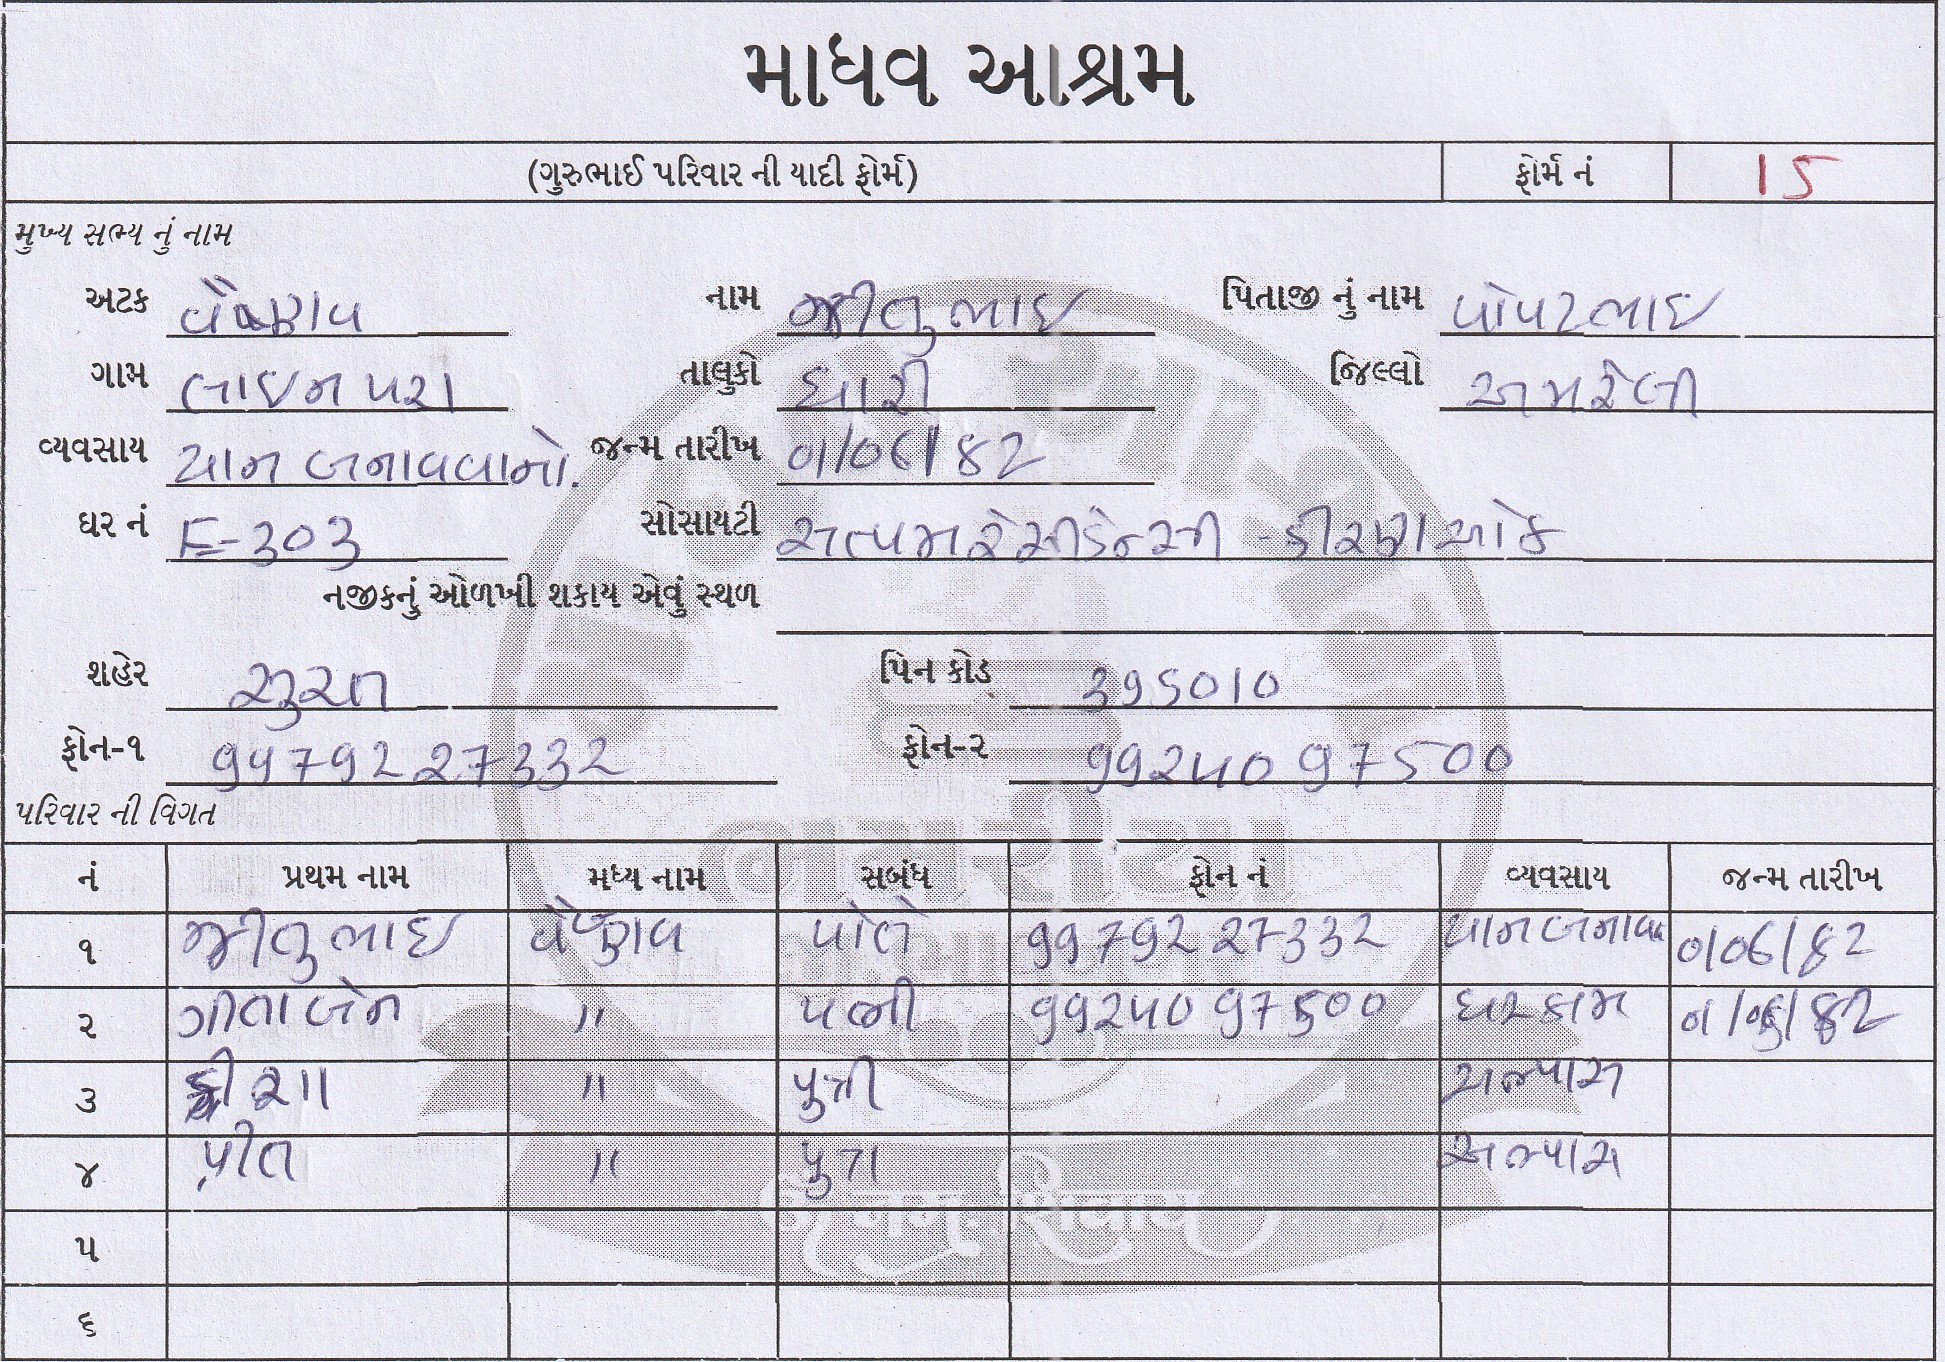 માધવ આશ્રમ
(ગુરુભાઈ પરિવાર ની યાદી ફોર્મ) ફોર્મ નં 15
મુખ્ય સભ્ય નું નામ
અટક વૈષ્ણવ નામ જીતુભાઇ પિતાજી નું નામ પોપટભાઇ
ગામ લાઇનપરા તાલુકો ધારી જિલ્લો અમરેલી
વ્યવસાય યાન બનાવવાનો. જન્મ તારીખ 01/06/82
ઘર નં E-303 સોસાયટી સત્યમ રેસીડેન્સી - કીરણ ચોક
નજીકનું ઓળખી શકાય એવું સ્થળ
શહેર સુરત પિન કોડ 395010
ફોન-૧ 99792 27332 ફોન-૨ 99240 97500
પરિવાર ની વિગત
નં પ્રથમ નામ મધ્ય નામ સબંધ ફોન નં વ્યવસાય જન્મ તારીખ
૧ જીતુભાઇ વૈષ્ણવ પોતે 99792 27332 યાન બનાવવા 01/06/82
૨ ગીતાબેન " પત્ની 99240 97500 ઘરકામ
૩ " પુત્રી અભ્યાસ
૪ પ્રીત " પુત્ર અભ્યાસ
૫
૬